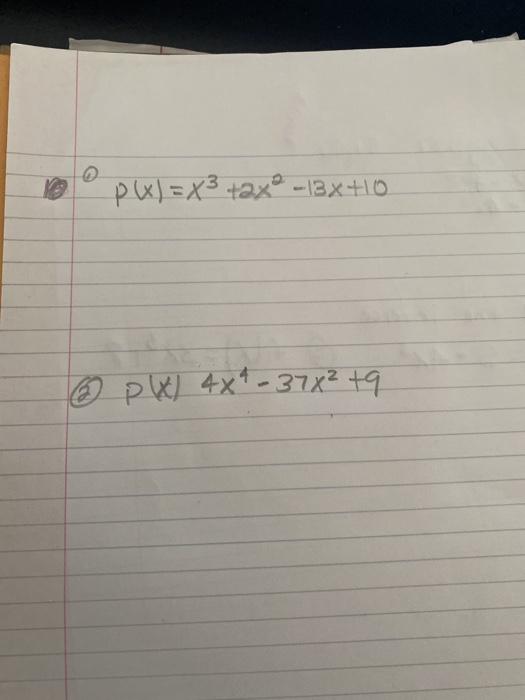 ① p(x)=x³+2x²-13x+10
② p(x) 4x⁴-37x²+9